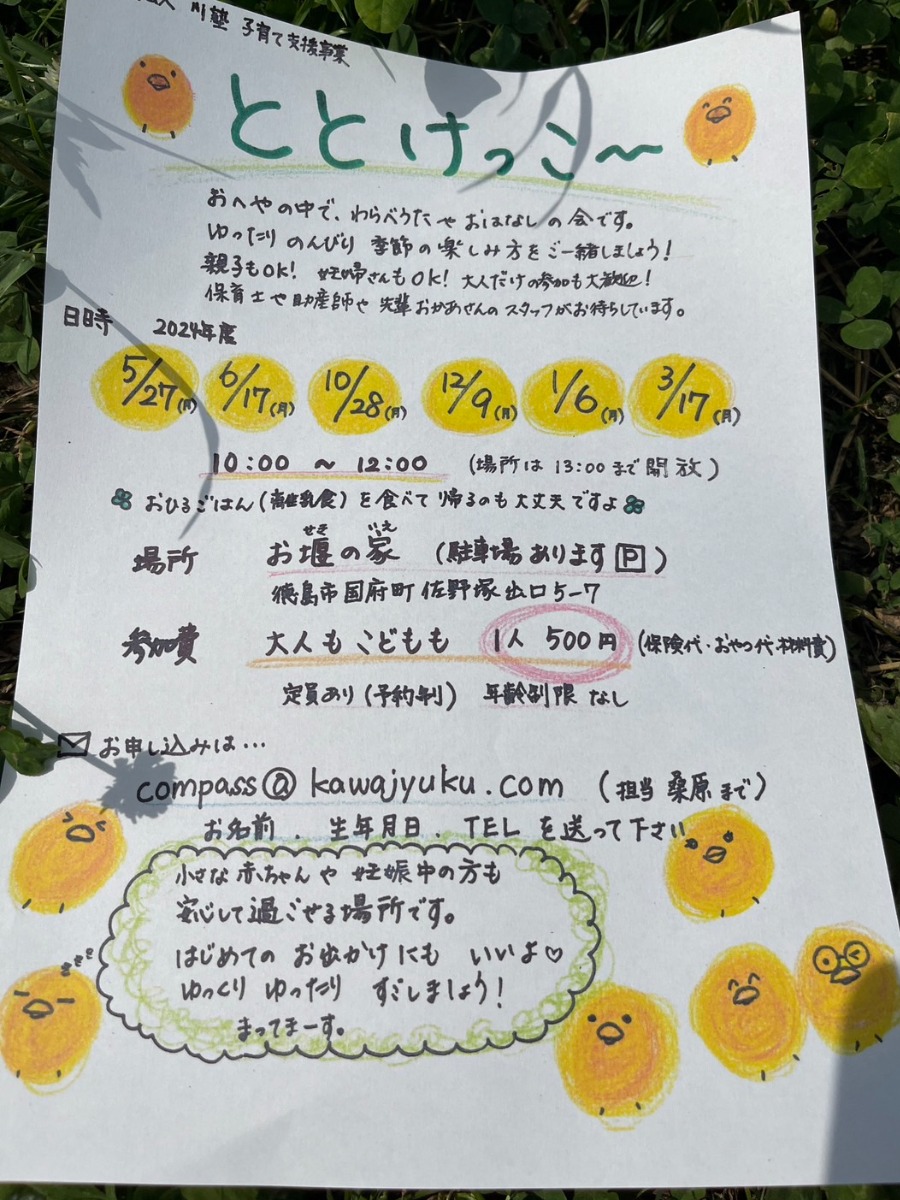 川塾 子育て支援事業
ととけっこ〜
おへやの中で、わらべうたや おはなしの会です。
ゆったり のんびり 季節の楽しみ方をご一緒しましょう!
親子もOK! 妊婦さんもOK! 大人だけの参加も大歓迎!
保育士や助産師や 先輩おかあさんの スタッフがお待ちしています。
日時 2024年度
5/27(月) 6/17(月) 10/28(月) 12/9(月) 1/6(月) 3/17(月)
10:00 〜 12:00 (場所は 13:00まで開放)
おひるごはん(離乳食)を食べて帰るのも大丈夫ですよ
せき いえ
場所 お堰の家 (駐車場あります P)
徳島市国府町佐野塚出口5-7
参加費 大人も こどもも 1人 500円 (保険代・おやつ代・材料費)
定員あり(予約制) 年齢制限 なし
お申し込みは…
compass@kawajyuku.com (担当 桑原まで)
お名前 . 生年月日 . TEL を送って下さい
小さな赤ちゃんや 妊娠中の方も
安心して過ごせる場所です。
はじめての お出かけにも いいよ♡
ゆっくり ゆったり すごしましょう!
まってまーす。
zzz